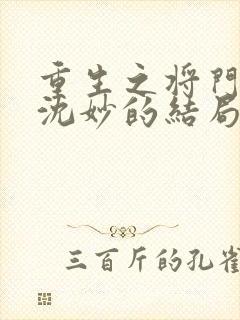 重生之将門
沈妙的結局
三百斤的孔雀